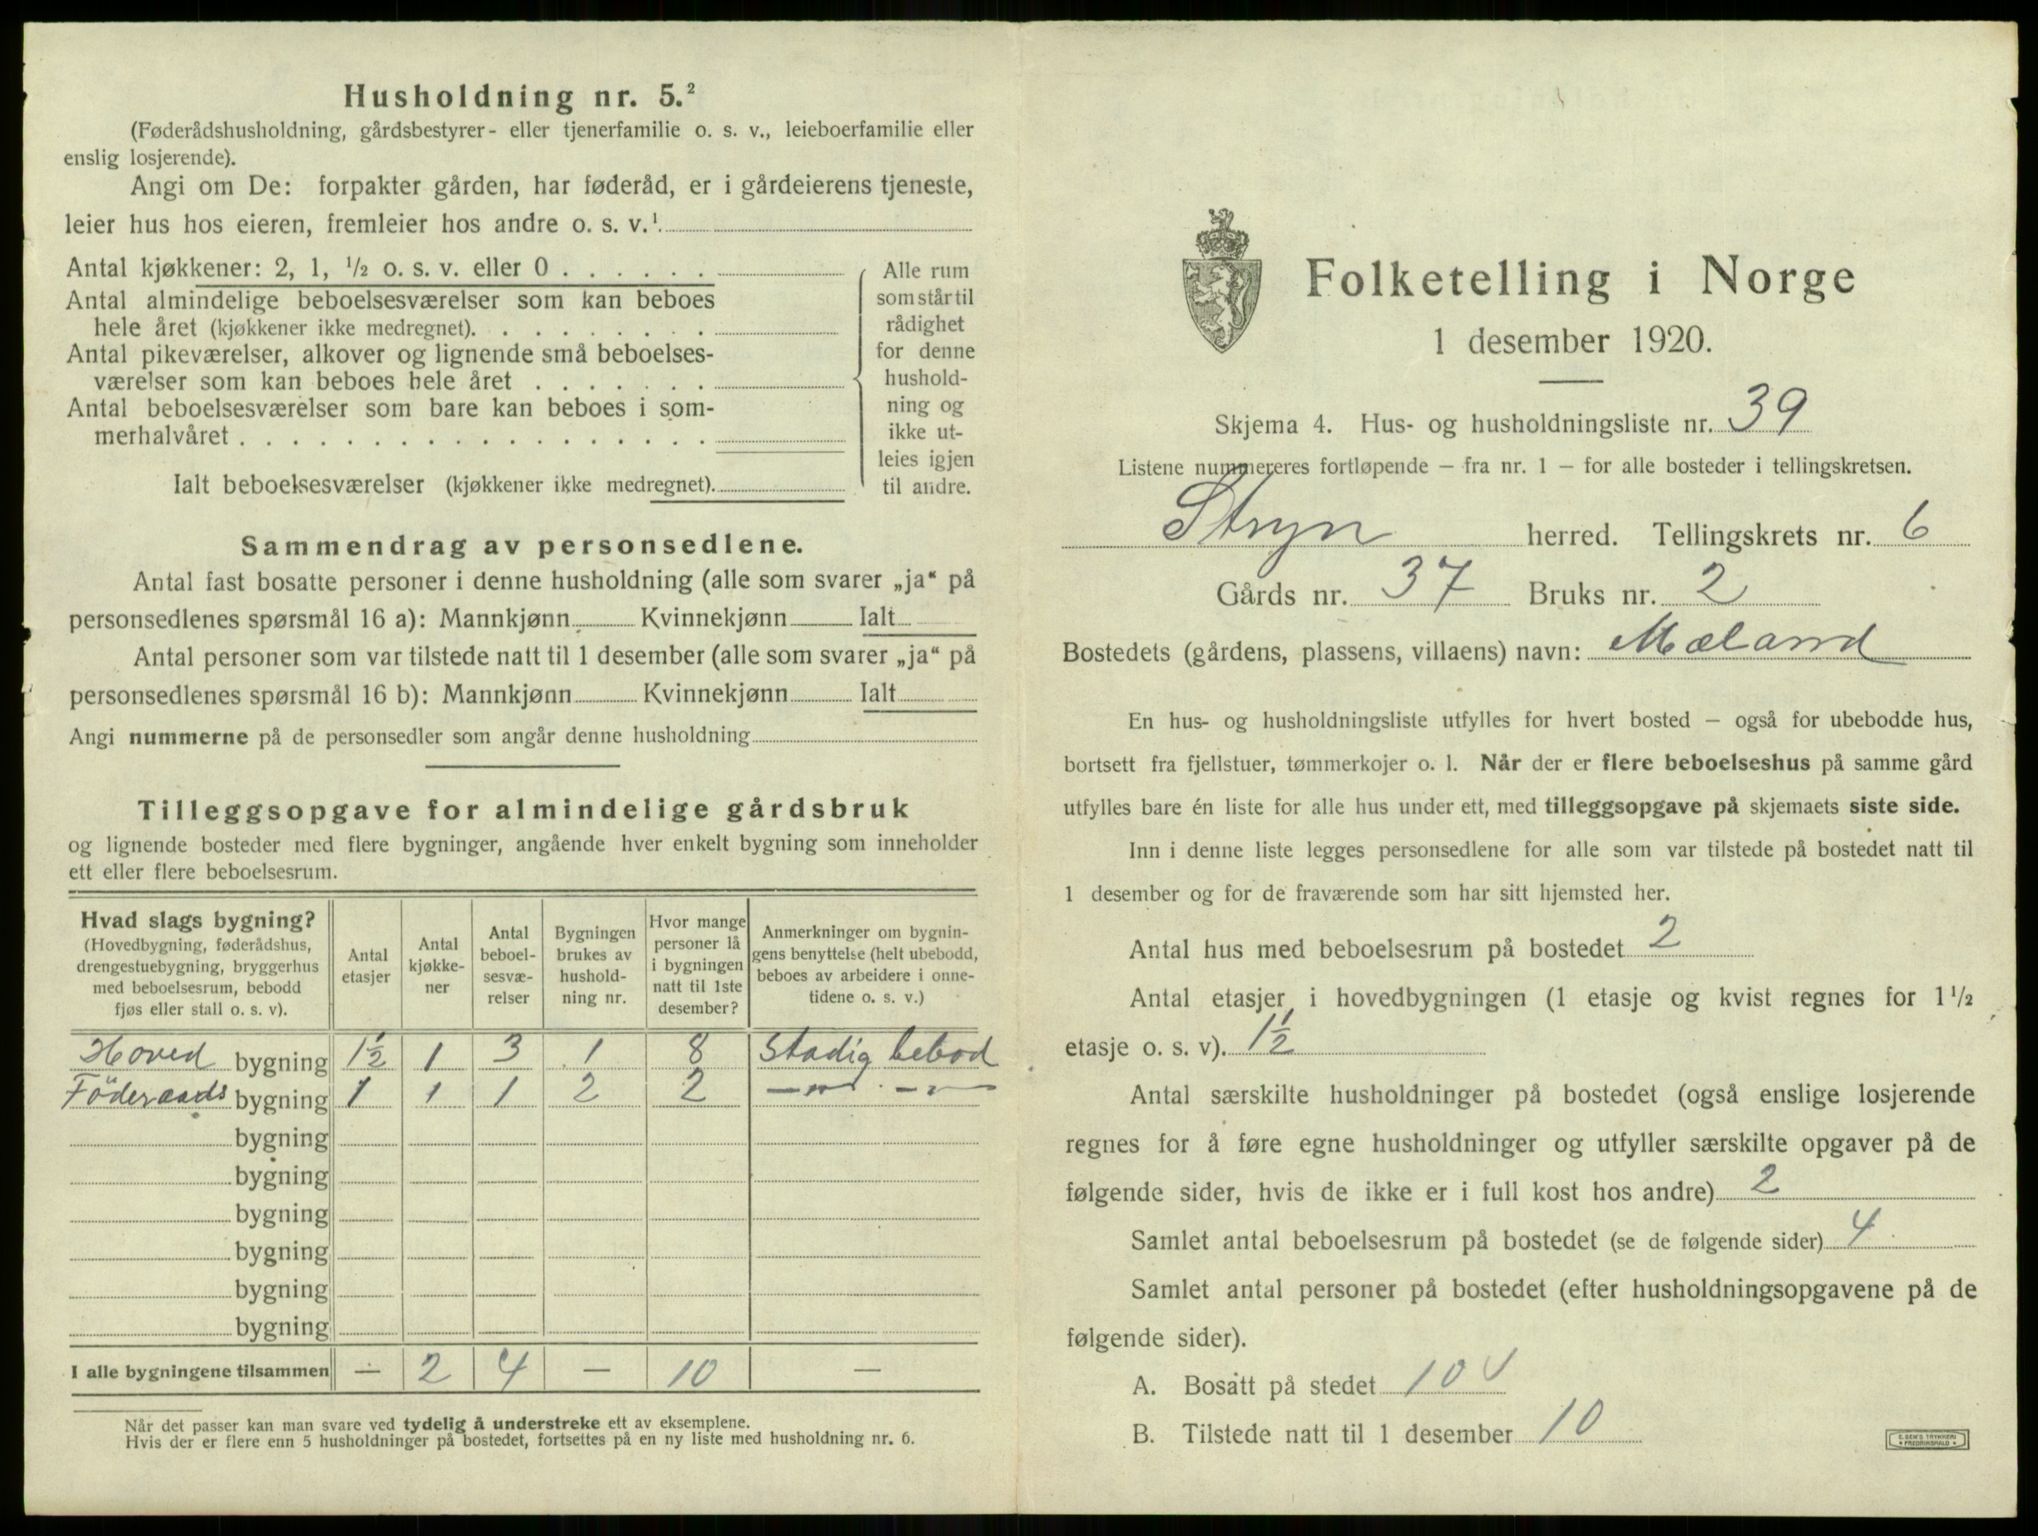 Husholdning nr. 5.²
(Føderådshusholdning, gårdsbestyrer- eller tjenerfamilie o. s. v., leieboerfamilie eller
enslig losjerende).
Angi om De: forpakter gården, har føderåd, er i gårdeierens tjeneste,
leier hus hos eieren, fremleier hos andre o. s. v.¹
Antal kjøkkener: 2, 1, ½ o. s. v. eller 0 . . . . . .
Antal almindelige beboelsesværelser som kan beboes
hele året (kjøkkener ikke medregnet). . . . . . . . .
Antal pikeværelser, alkover og lignende små beboelses-
værelser som kan beboes hele året . . . . . . .
Antal beboelsesværelser som bare kan beboes i som-
merhalvåret . . . . . . . . . . . . . . . . . .
Ialt beboelsesværelser (kjøkkener ikke medregnet).
Alle rum
som står til
rådighet
for denne
hushold-
ning og
ikke ut-
leies igjen
til andre.
Sammendrag av personsedlene.
Antal fast bosatte personer i denne husholdning (alle som svarer „ja“ på
personsedlenes spørsmål 16 a): Mannkjønn Kvinnekjønn Ialt
Antal personer som var tilstede natt til 1 desember (alle som svarer „ja“ på
personsedlenes spørsmål 16 b): Mannkjønn Kvinnekjønn Ialt
Angi nummerne på de personsedler som angår denne husholdning
Tilleggsopgave for almindelige gårdsbruk
og lignende bosteder med flere bygninger, angående hver enkelt bygning som inneholder
ett eller flere beboelsesrum.
Hvad slags bygning?
(Hovedbygning, føderådshus,
drengestuebygning, bryggerhus
med beboelsesrum, bebodd
fjøs eller stall o. s. v).
Antal
etasjer
Antal
kjøkke-
ner
Antal
beboel-
sesvæ-
relser
Bygningen
brukes av
hushold-
ning nr.
Hvor mange
personer lå
i bygningen
natt til 1ste
desember?
Anmerkninger om bygnin-
gens benyttelse (helt ubebodd,
beboes av arbeidere i onne-
tidene o. s. v.)
Hoved bygning 1½ 1 3 1 8 Stadig bebod
Föderaads bygning 1 1 1 2 2 —"— —"—
bygning
bygning
bygning
bygning
bygning
bygning
I alle bygningene tilsammen — 2 4 — 10 —
Når det passer kan man svare ved tydelig å understreke ett av eksemplene.
Hvis der er flere enn 5 husholdninger på bostedet, fortsettes på en ny liste med husholdning nr. 6.
Folketelling i Norge
1 desember 1920.
Skjema 4. Hus- og husholdningsliste nr. 39
Listene nummereres fortløpende — fra nr. 1 — for alle bosteder i tellingskretsen.
Stryn herred. Tellingskrets nr. 6
Gårds nr. 37 Bruks nr. 2
Bostedets (gårdens, plassens, villaens) navn: Mæland
En hus- og husholdningsliste utfylles for hvert bosted — også for ubebodde hus,
bortsett fra fjellstuer, tømmerkojer o. l. Når der er flere beboelseshus på samme gård
utfylles bare én liste for alle hus under ett, med tilleggsopgave på skjemaets siste side.
Inn i denne liste legges personsedlene for alle som var tilstede på bostedet natt til
1 desember og for de fraværende som har sitt hjemsted her.
Antal hus med beboelsesrum på bostedet 2
Antal etasjer i hovedbygningen (1 etasje og kvist regnes for 1½
etasje o. s. v). 1½
Antal særskilte husholdninger på bostedet (også enslige losjerende
regnes for å føre egne husholdninger og utfyller særskilte opgaver på de
følgende sider, hvis de ikke er i full kost hos andre) 2
Samlet antal beboelsesrum på bostedet (se de følgende sider) 4
Samlet antal personer på bostedet (efter husholdningsopgavene på de
følgende sider).
A. Bosatt på stedet 10 √
B. Tilstede natt til 1 desember 10
E. SEM'S TRYKKERI
• FREDRIKSHALD •